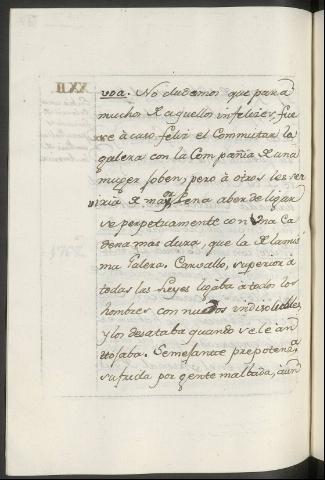 XXII
voa. No dudemos que para
muchos de aquellos infelizes, fue
se à caso feliz el Commutar la
galera con la Compañia de una
muger joben, pero à otros les ser
viria de mayor pena aberde ligar
se perpetuamente con una Ca
dena mas dura, que la de la mis
ma Galera. Carvallo, superior à
todas las Leyes ligaba à todo los
hombres con nudos indisolubles,
y los desataba quando se le an
tojaba. Semejante prepotenza
sufrida por gente malbada, aun